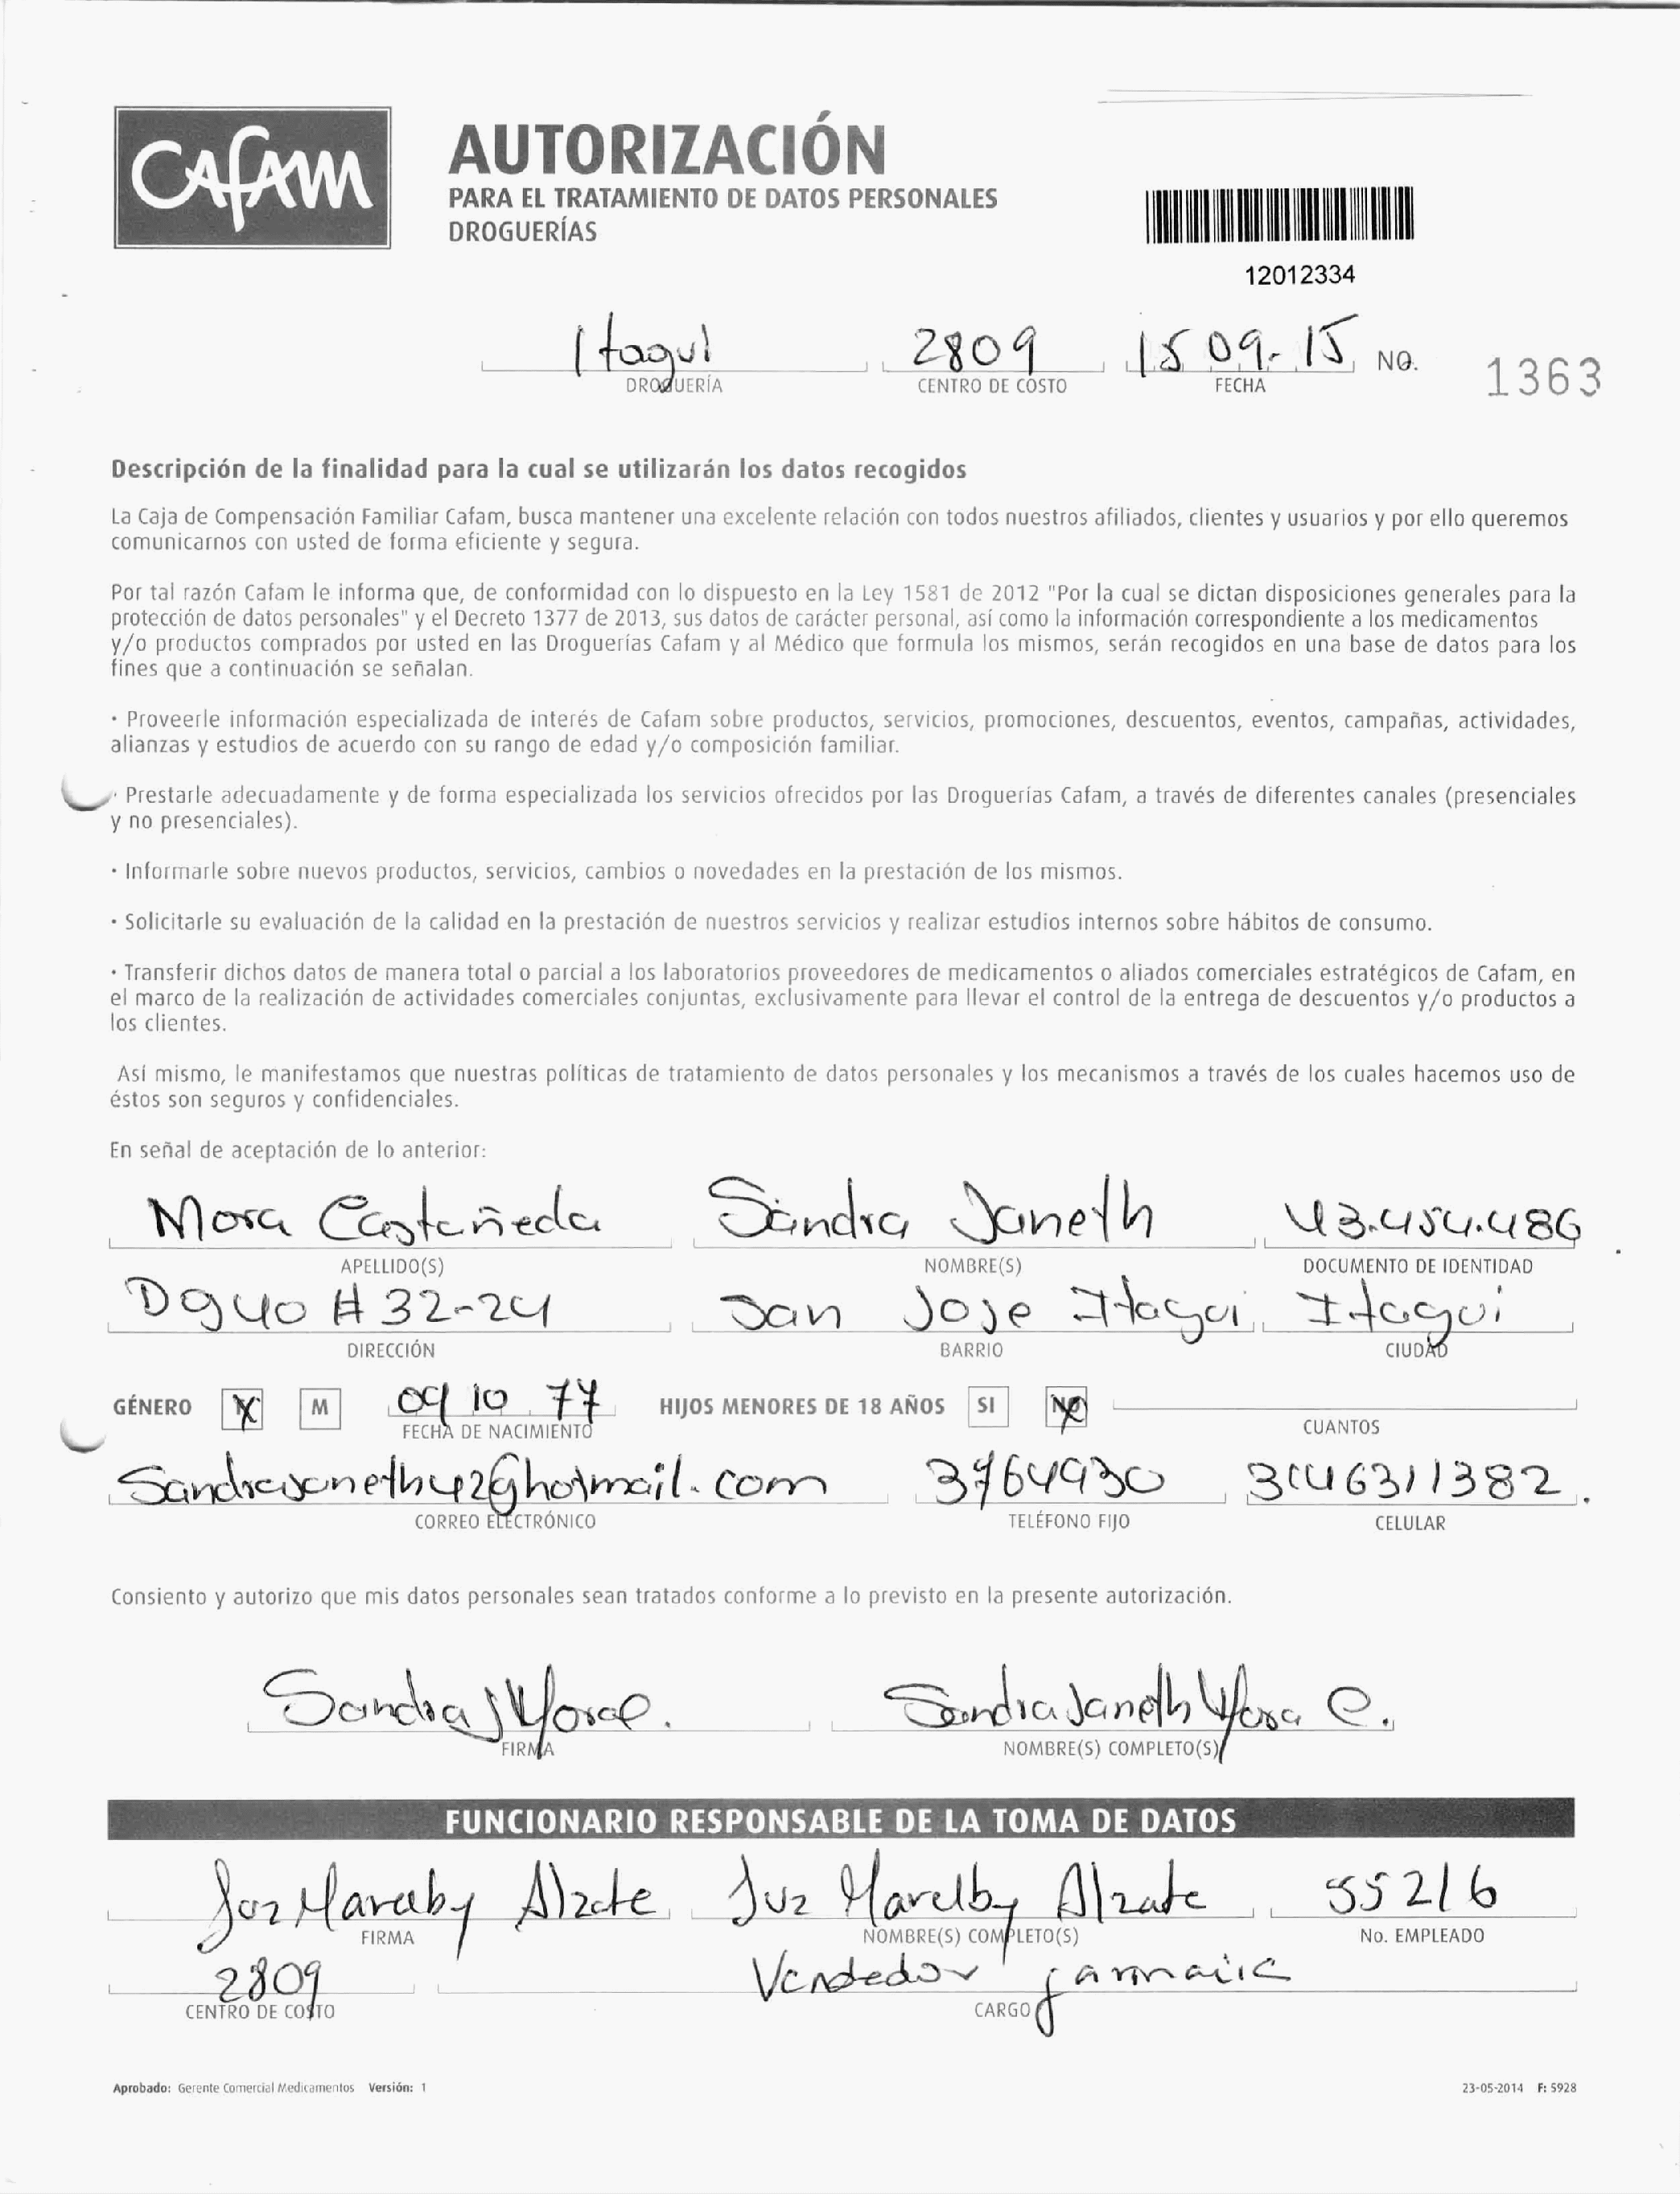 CAFAM
AUTORIZACIÓN
PARA EL TRATAMIENTO DE DATOS PERSONALES
DROGUERÍAS
12012334
Itagui 2809 15 09-15 NO. 1363
DROGUERÍA CENTRO DE COSTO FECHA
Descripción de la finalidad para la cual se utilizarán los datos recogidos
La Caja de Compensación Familiar Cafam, busca mantener una excelente relación con todos nuestros afiliados, clientes y usuarios y por ello queremos
comunicarnos con usted de forma eficiente y segura.
Por tal razón Cafam le informa que, de conformidad con lo dispuesto en la Ley 1581 de 2012 "Por la cual se dictan disposiciones generales para la
protección de datos personales" y el Decreto 1377 de 2013, sus datos de carácter personal, así como la información correspondiente a los medicamentos
y/o productos comprados por usted en las Droguerías Cafam y al Médico que formula los mismos, serán recogidos en una base de datos para los
fines que a continuación se señalan.
· Proveerle información especializada de interés de Cafam sobre productos, servicios, promociones, descuentos, eventos, campañas, actividades,
alianzas y estudios de acuerdo con su rango de edad y/o composición familiar.
· Prestarle adecuadamente y de forma especializada los servicios ofrecidos por las Droguerías Cafam, a través de diferentes canales (presenciales
y no presenciales).
· Informarle sobre nuevos productos, servicios, cambios o novedades en la prestación de los mismos.
· Solicitarle su evaluación de la calidad en la prestación de nuestros servicios y realizar estudios internos sobre hábitos de consumo.
· Transferir dichos datos de manera total o parcial a los laboratorios proveedores de medicamentos o aliados comerciales estratégicos de Cafam, en
el marco de la realización de actividades comerciales conjuntas, exclusivamente para llevar el control de la entrega de descuentos y/o productos a
los clientes.
Así mismo, le manifestamos que nuestras políticas de tratamiento de datos personales y los mecanismos a través de los cuales hacemos uso de
éstos son seguros y confidenciales.
En señal de aceptación de lo anterior:
Mora Castañeda Sandra Janeth 43.454.486
APELLIDO(S) NOMBRE(S) DOCUMENTO DE IDENTIDAD
Dg 40 # 32-24 San Jose Itagui Itagui
DIRECCIÓN BARRIO CIUDAD
GÉNERO X M 09 10 77 HIJOS MENORES DE 18 AÑOS SI NO
FECHA DE NACIMIENTO CUANTOS
Sandrajaneth42@hotmail.com 3764930 3146311382.
CORREO ELECTRÓNICO TELÉFONO FIJO CELULAR
Consiento y autorizo que mis datos personales sean tratados conforme a lo previsto en la presente autorización.
Sandra J Mora C. Sandra Janeth Mora C.
FIRMA NOMBRE(S) COMPLETO(S)
FUNCIONARIO RESPONSABLE DE LA TOMA DE DATOS
Luz Marelby Alzate Luz Marelby Alzate 55216
FIRMA NOMBRE(S) COMPLETO(S) No. EMPLEADO
2809 Vendedor farmacia
CENTRO DE COSTO CARGO
Aprobado: Gerente Comercial Medicamentos Versión: 1 23-05-2014 F: 5928